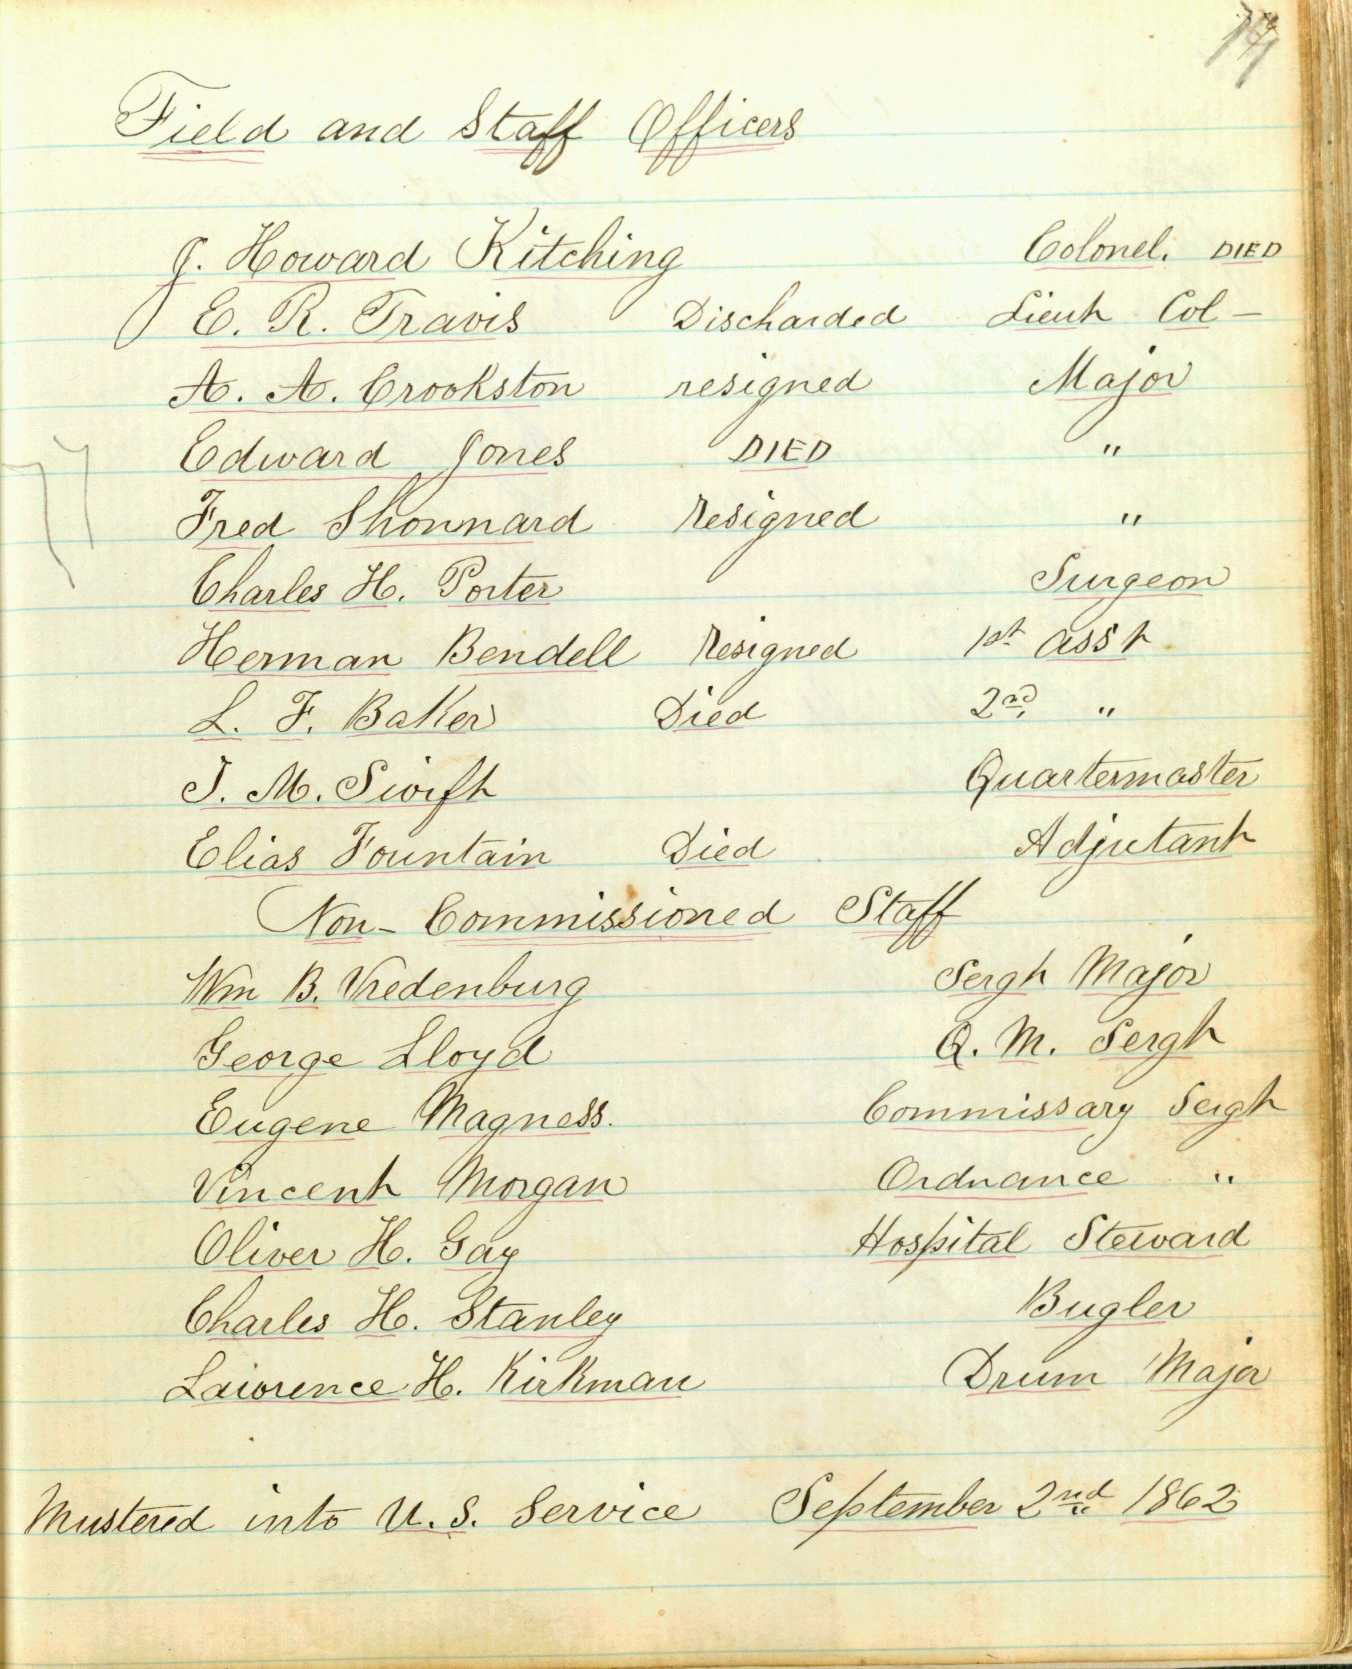 Field and Staff Officers
J. Howard Kitching Colonel. DIED
E. R. Travis Discharded Lieut Col –
A. A. Crookston resigned Major
Edward Jones DIED "
Fred Shonnard Resigned "
Charles H. Porter Surgeon
Herman Bendell Resigned 1st asst
L. F. Baker Died 2nd "
T. M. Swift Quartermaster
Elias Fountain Died Adjutant
Non - Commissioned Staff
Wm B. Vredenburg Sergt Major
George Lloyd Q. M. Sergt
Eugene Magness. Commissary Sergt
Vincent Morgan Ordnance "
Oliver H. Gay Hospital Steward
Charles H. Stanley Bugler
Lawrence H. Kirkman Drum Major
Mustered into U. S. Service September 2nd 1862